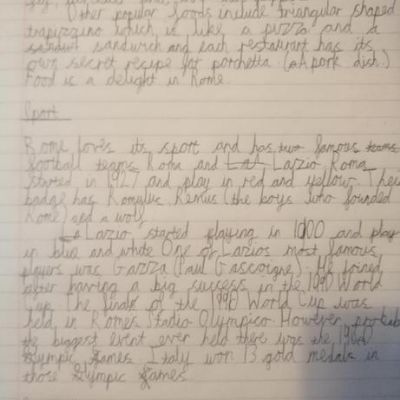 Other popular foods include triangular shaped
trapizzino which is like a pizza and a
sandwich and each restaurant has its
own secret recipe for porchetta (a pork dish.)
Food is a delight in Rome.
Sport
Rome loves its sport and has two famous teams
football teams Roma and Lazio Roma
started in 1927 and play in red and yellow. Their
badge has Romulus Remus (the boys who founded
Rome) and a wolf.
Lazio started playing in 1900 and play
in blue and white One of Lazios most famous
players was Gazza (Paul Gascoigne). He joined
after having a big success in the 1990 World
Cup. The finals of the 1990 World Cup was
held in Romes Stadio Olympico. However, probab
the biggest event ever held there was the 1960
Olympic Games. Italy won 13 gold medals in
those Olympic Games